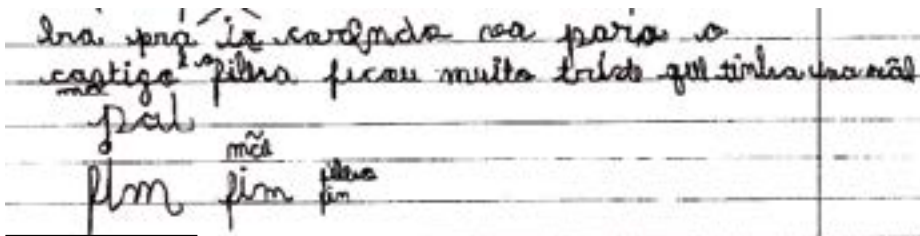 pra ir correndo va para o
castigo e o filho ficou muito triste que tinha uma mãe
má
pai
mãe filho
fim fim fin